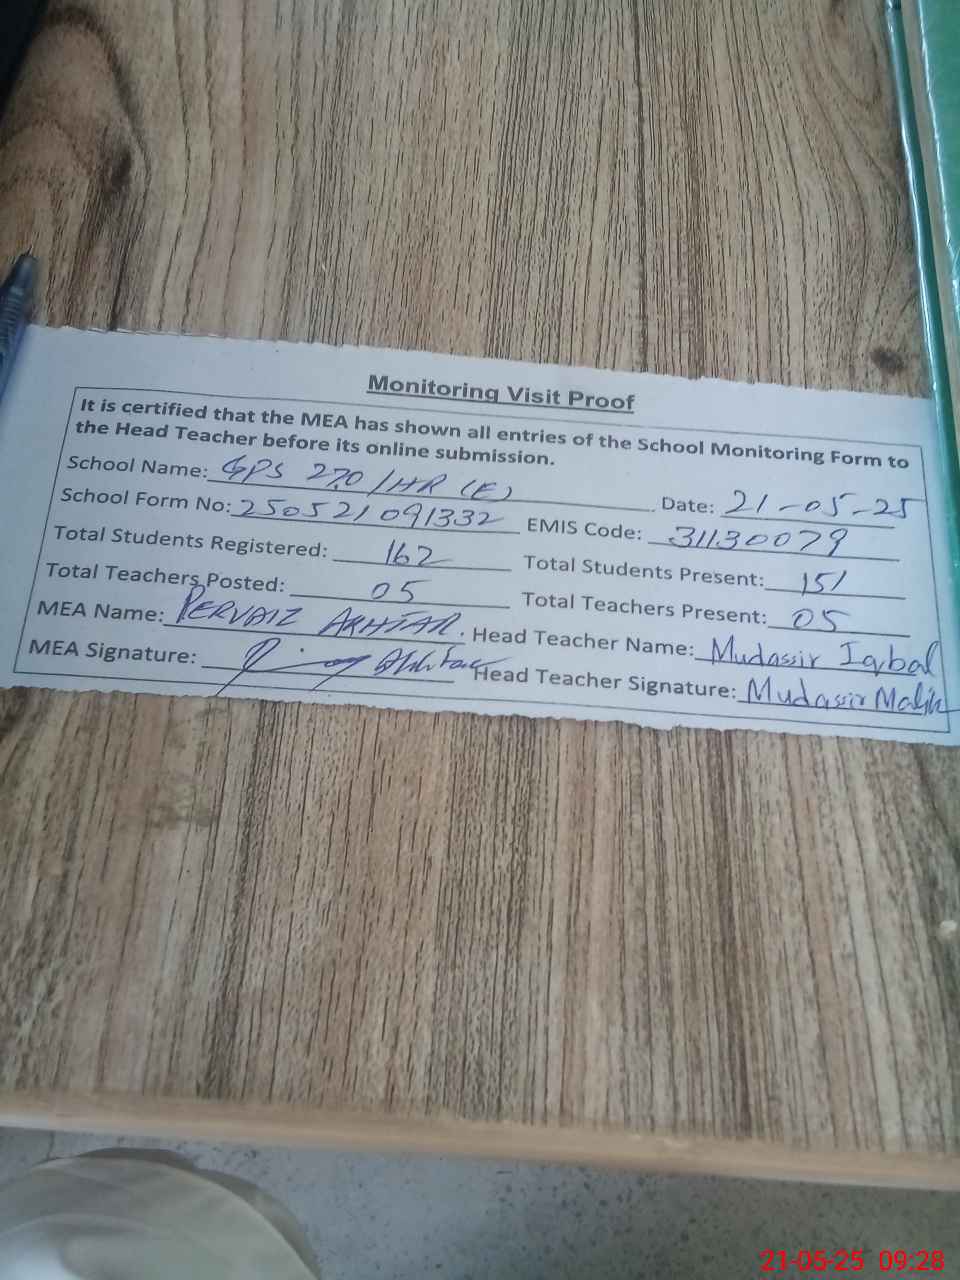 Monitoring Visit Proof
It is certified that the MEA has shown all entries of the School Monitoring Form to
the Head Teacher before its online submission.
School Name: GPS 270/HR (E) Date: 21-05-25
School Form No: 250521091332 EMIS Code: 31130079
Total Students Registered: 162 Total Students Present: 151
Total Teachers Posted: 05 Total Teachers Present: 05
MEA Name: PERVAIZ AKHTAR. Head Teacher Name: Mudassir Iqbal
MEA Signature: Akhtar Head Teacher Signature: Mudassir Malik
21-05-25 09:28